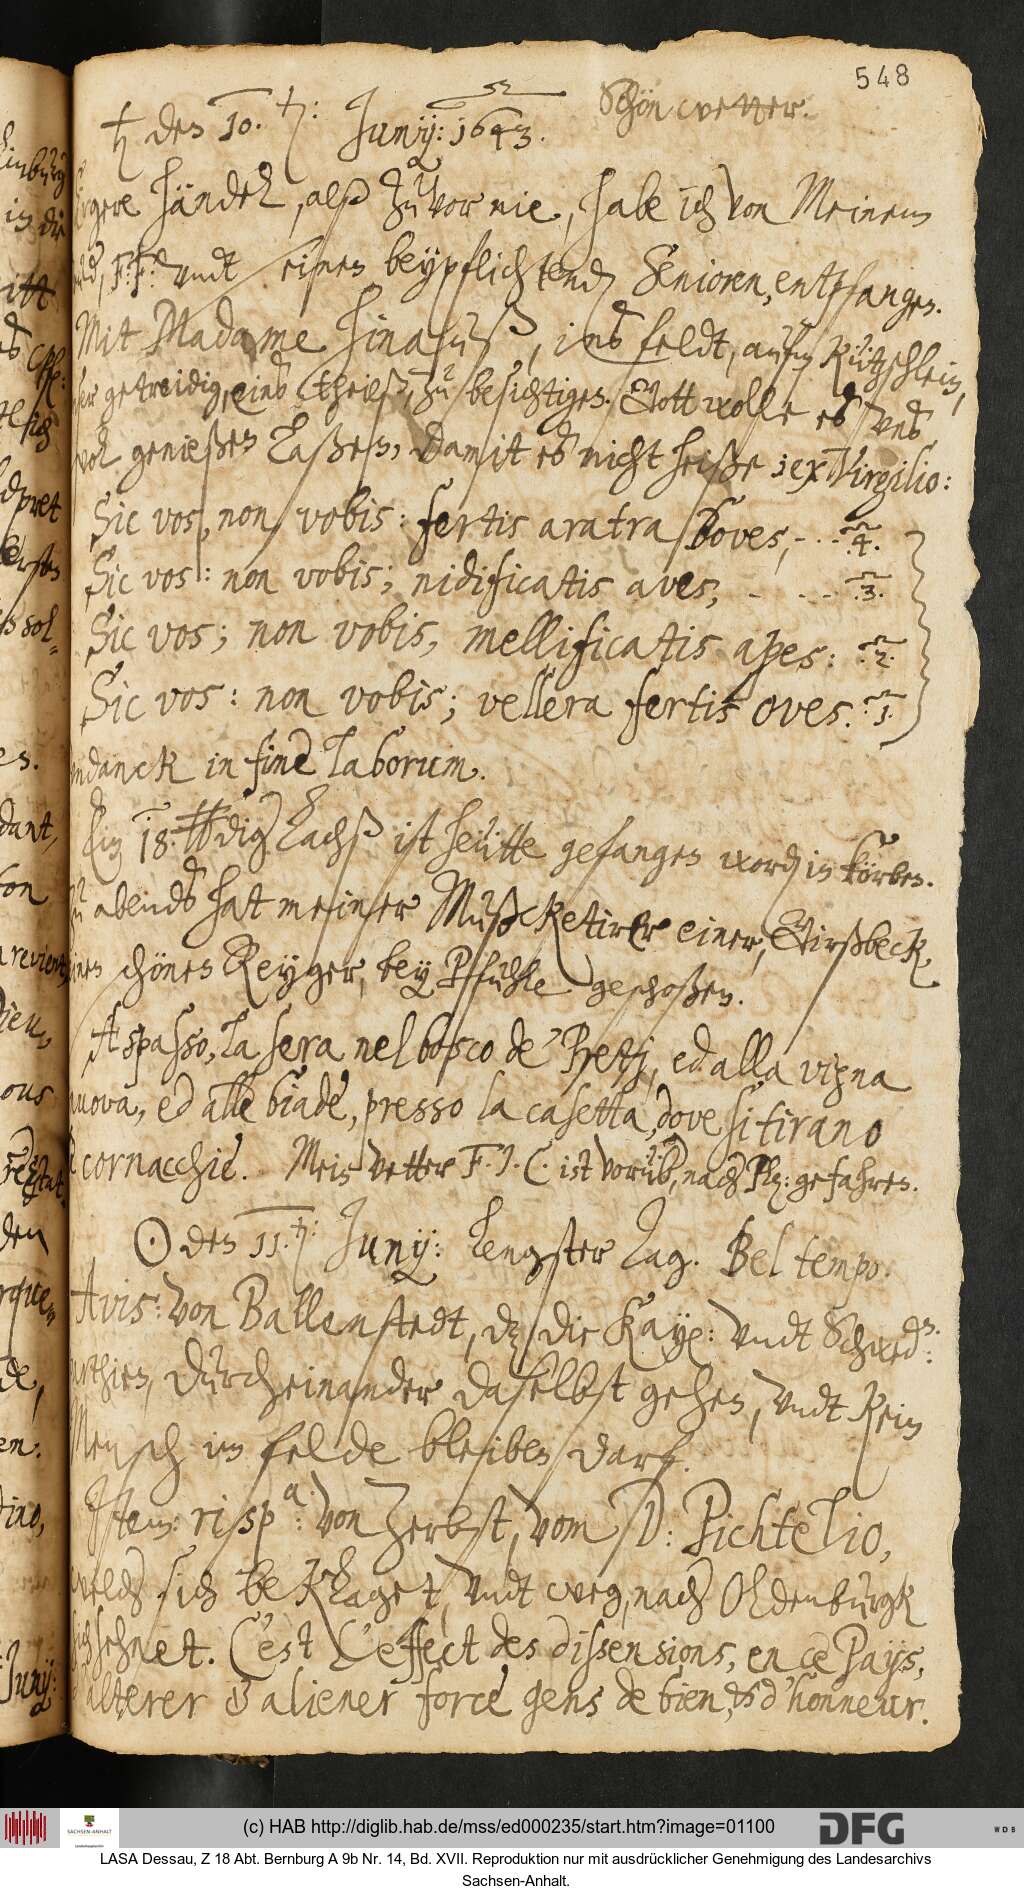 548
♄ den 10. t: Junij: 1643. Schön wetter.
ärgere händel, alß zuvor nie, habe ich von Meinem
F. F. undt seinen beypflichtenden Senioren, entpfangen.
Mit Madame hinauß, ins feldt, aufm kützschlein,
der getreidig, eins theilß, zu besichtigen. Gott wolle es uns
wol genießen laßen, damit es nicht heiße: ex Virgilio:
Sic vos, non vobis: fertis aratra Boves; - - - 4.
Sic vos: non vobis; nidificatis aves; - - - - 3.
Sic vos; non vobis, mellificatis apes: 2.
Sic vos: non vobis; vellera fertis oves. 1.
undanck in fine laborum.
Ein 18. ℔dig Lachß ist heütte gefangen word in körben.
zu abends hat meiner Mußcketirer einer, Girßbeck,
einen schönen Reyger, bey Pfuhle geschoßen.
A spasso, la sera nel bosco de' Prettj, ed alla vigna
nuova, ed alle biade, presso la casetta, dove si tirano
cornacchie. Mein Vetter F. J. C. ist vorüb, nach Plz: gefahren.
☉ den 11. t: Junij: Lengster Tag. Bel tempo.
Avis: von Ballenstedt, dz die Kayß: undt Schwed:
parthien, durcheinander daselbst gehen, undt kein
Mensch im felde bleiben darf.
Item: risp.a: von Zerbst, vom D: Pichtelio,
welch sich beklaget, undt weg, nach Oldenburgk
sich sehnet. C'est l'effect des dissensions, en ce Pays,
d'alterer & aliener force gens de bien, & d'honneur.
(c) HAB http://diglib.hab.de/mss/ed000235/start.htm?image=01100
SACHSEN-ANHALT
DFG
WDB
LASA Dessau, Z 18 Abt. Bernburg A 9b Nr. 14, Bd. XVII. Reproduktion nur mit ausdrücklicher Genehmigung des Landesarchivs
Sachsen-Anhalt.